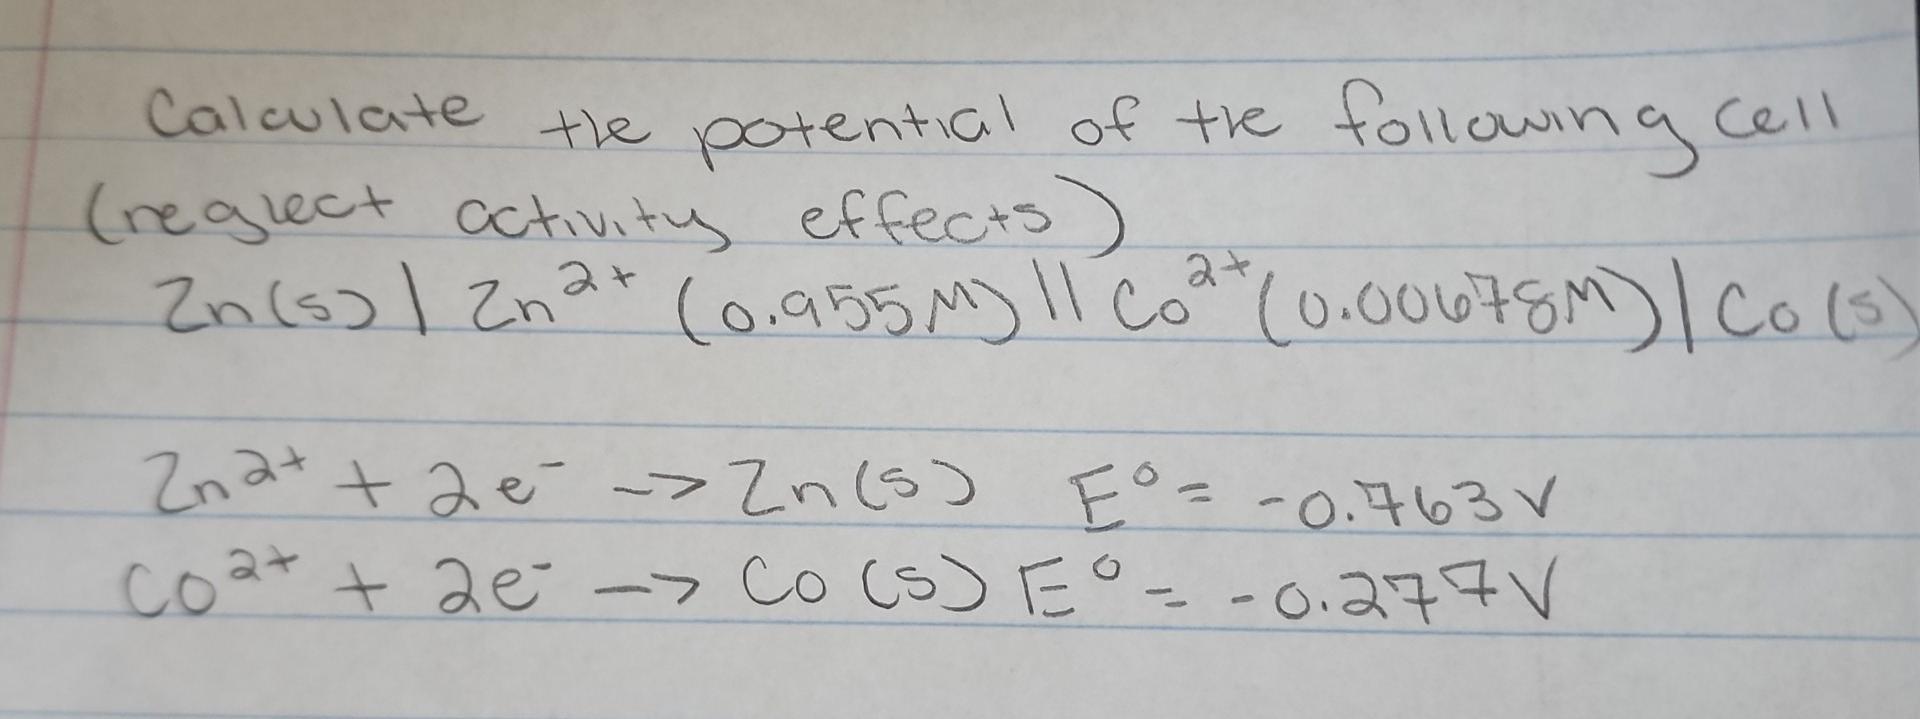 Calculate the potential of the following cell
(neglect activity effects)
Zn(s) | Zn²⁺ (0.955M) || Co²⁺ (0.00678M) | Co (s)
Zn²⁺ + 2e⁻ -> Zn(s) E⁰ = -0.763V
Co²⁺ + 2e⁻ -> Co (s) E⁰ = -0.277V